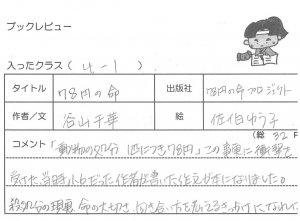 ブックレビュー
入ったクラス ( 4-1 )
タイトル 78円の命 出版社 78円の命プロジェクト
作者/文 谷山千華 絵 佐伯ゆう子
(総 32 P
コメント 「動物の処分 一匹につき78円」この事実に衝撃を
受けた、当時小6だった作者が書いた作文が本になりました。
殺処分の現実、命の大切さ、向き合い方を考えるきっかけになれば